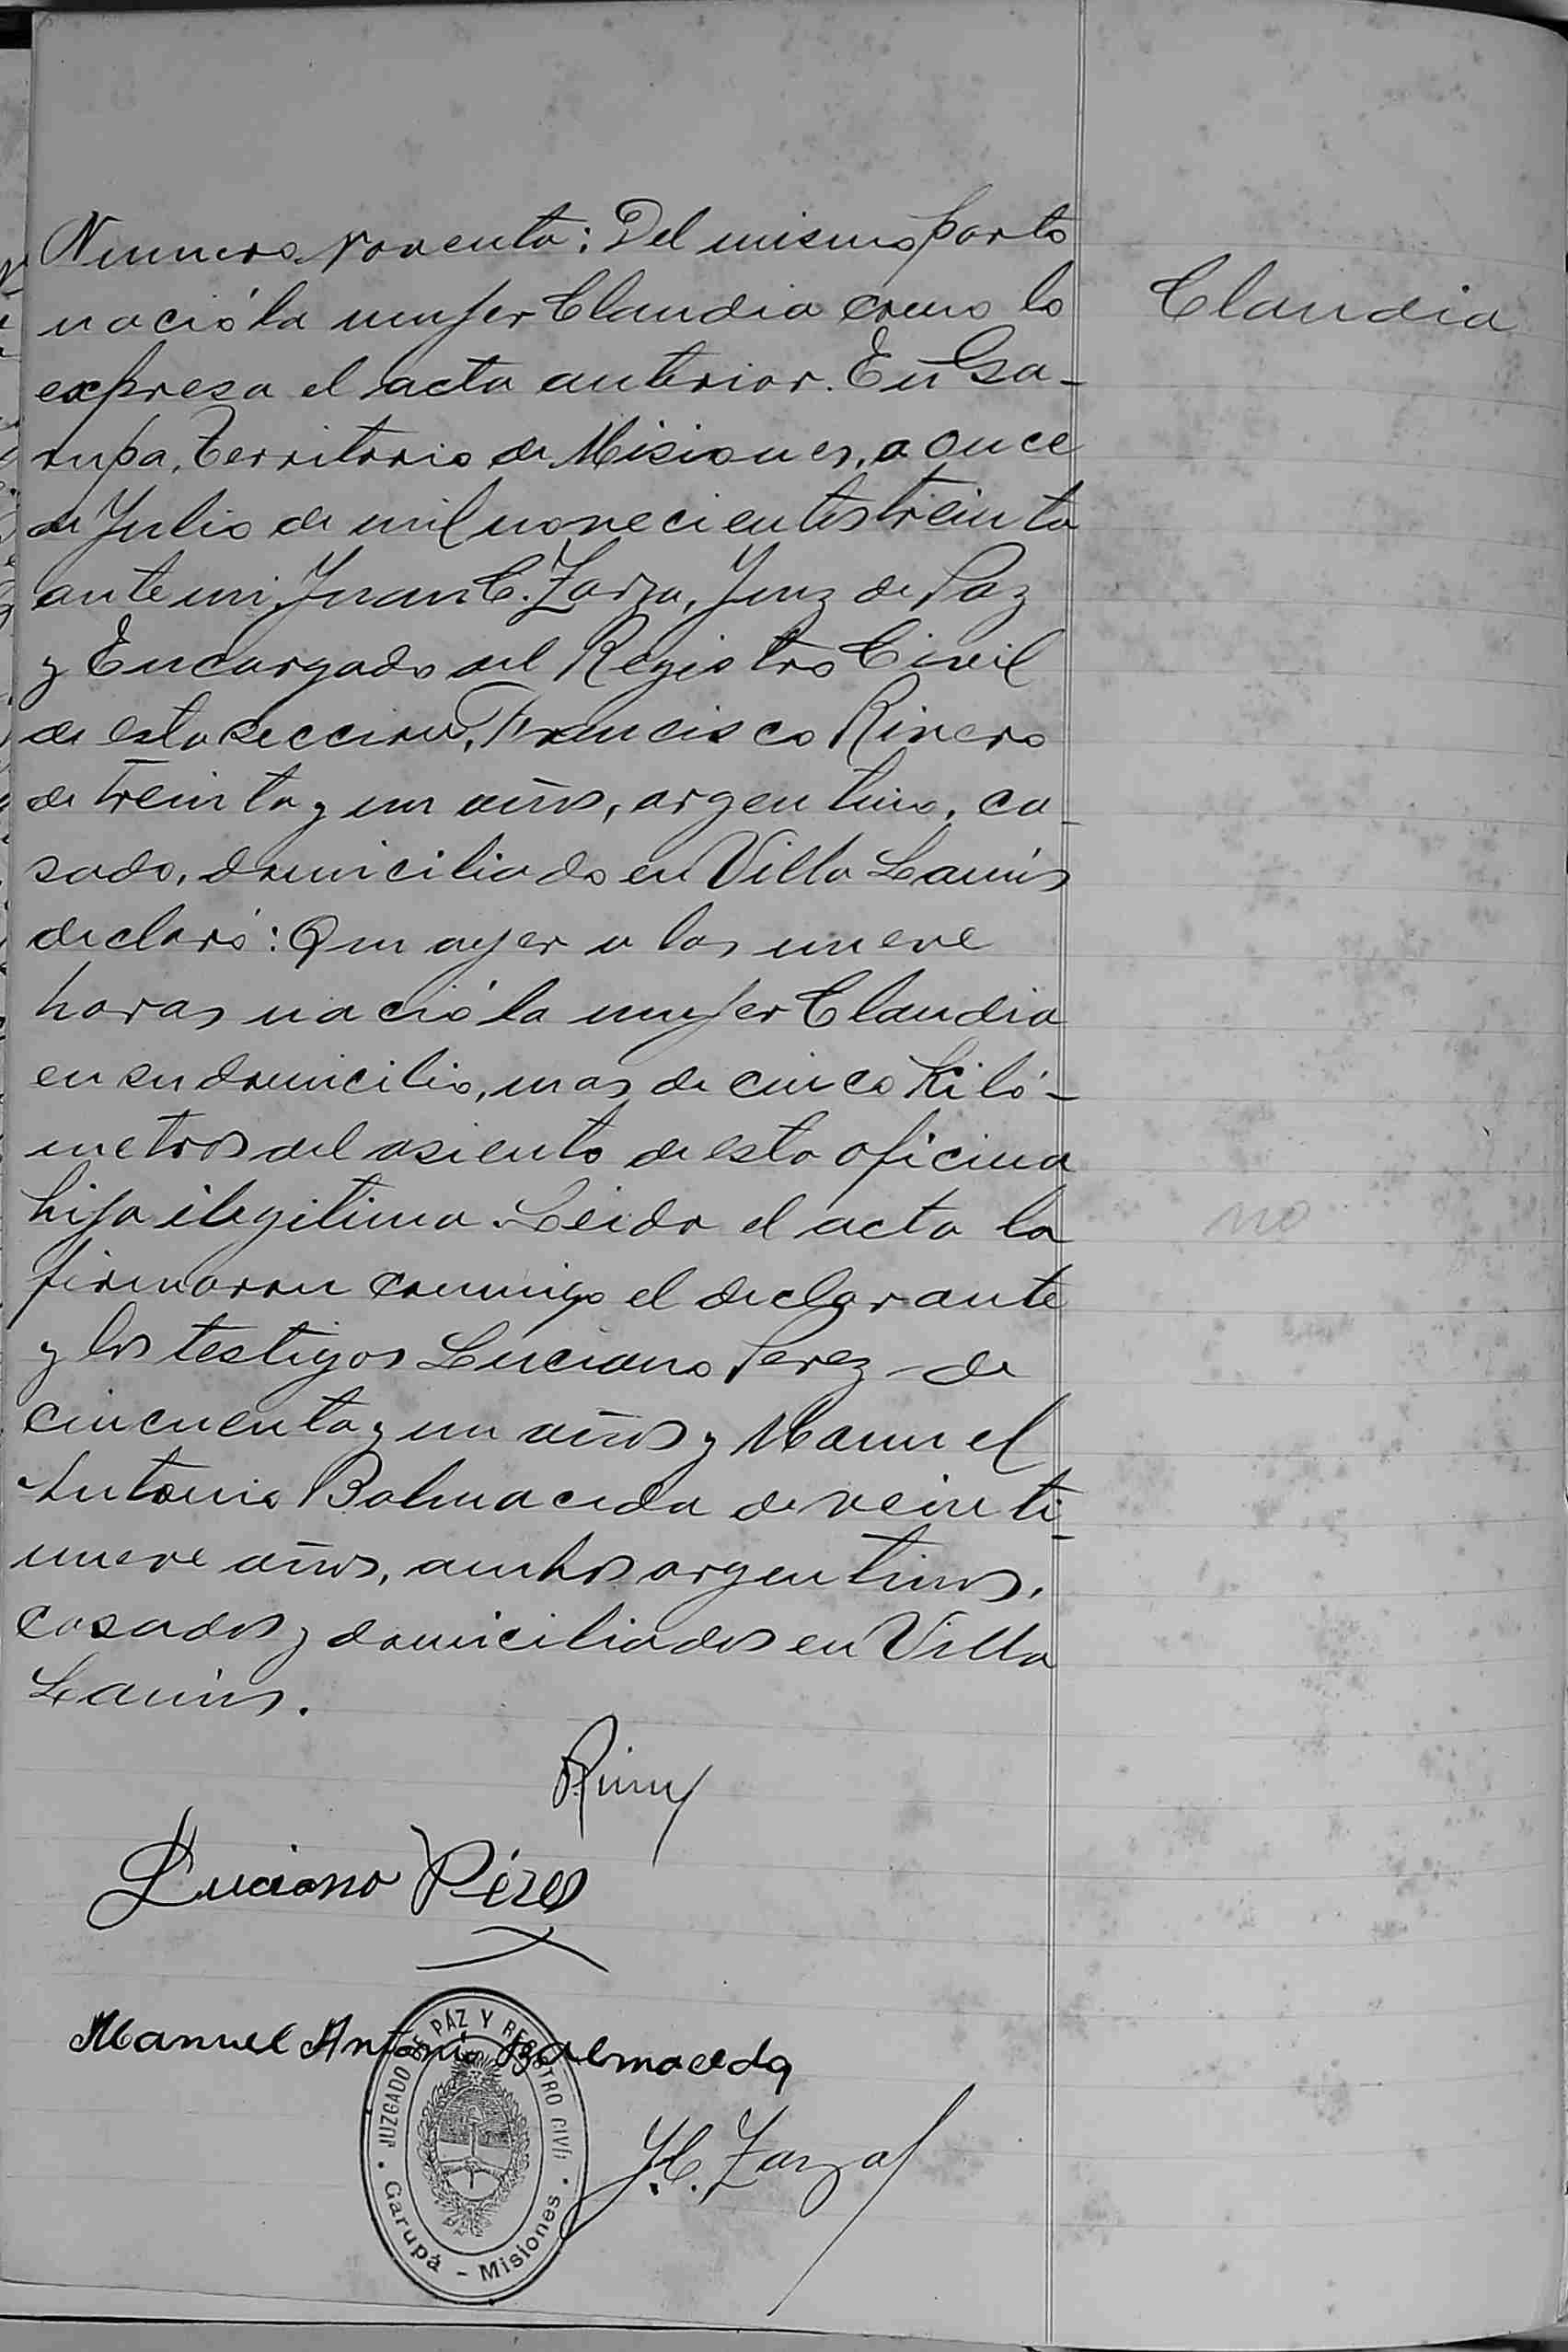 Numero Noventa: Del mismo parto
nació la mujer Claudia como lo
expresa el acta anterior. En Ga-
rupa, Territorio de Misiones, a once
de Julio de mil novecientos treinta
ante mi, Juan C. Zarza, Juez de Paz
y Encargado del Registro Civil
de esta seccion, Francisco Rivero
de treinta y un años, argentino, ca-
sado, domiciliado en Villa Lanús
declaró: Que ayer a las nueve
horas nació la mujer Claudia
en su domicilio, mas de cinco Kiló-
metros del asiento de esta oficina
hija ilegitima. Leida el acta la
firmaron conmigo el declarante
y los testigos Luciano Perez de
cincuenta y un años y Manuel
Antonio Balmaceda de veinti-
nueve años, ambos argentinos,
casados y domiciliados en Villa
Lanús.
Claudia
no
Luciano Pérez
Manuel Antonio Balmaceda
J.C. Zarza
JUZGADO DE PAZ Y REGISTRO CIVIL
Garupá - Misiones